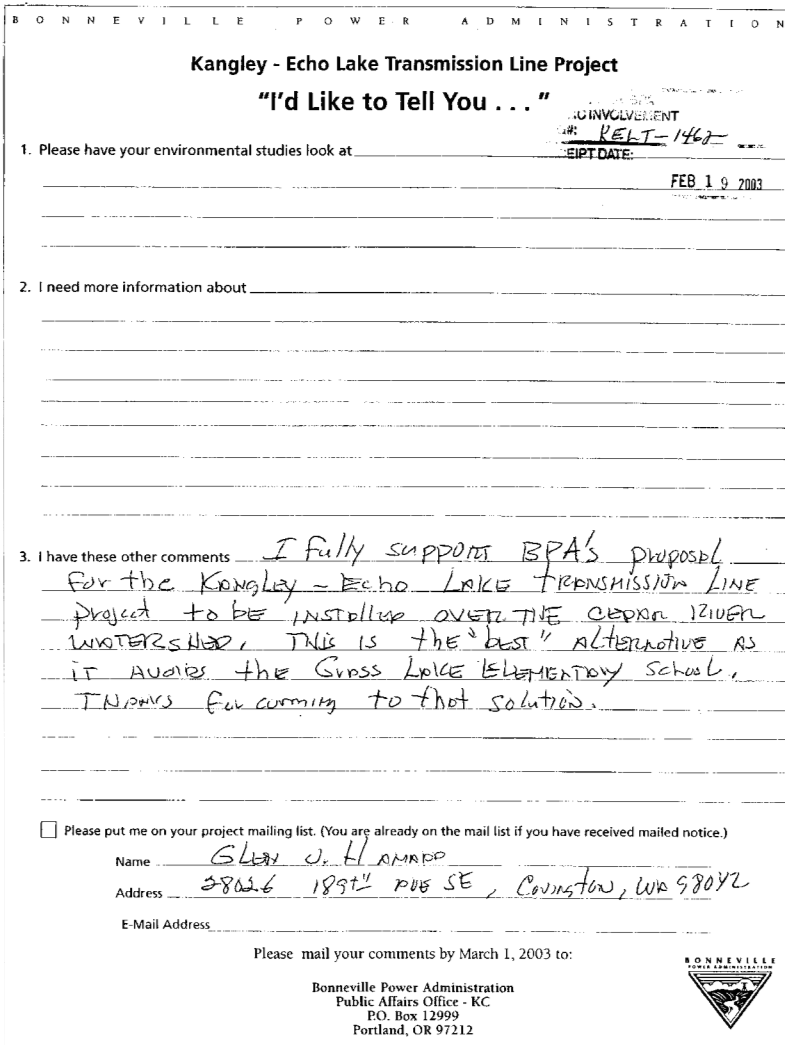 BONNEVILLE POWER ADMINISTRATION
Kangley - Echo Lake Transmission Line Project
"I'd Like to Tell You . . . "
INVOLVEMENT
#: KELT-1462
EIPT DATE:
1. Please have your environmental studies look at
FEB 19 2003
2. I need more information about
3. I have these other comments I fully support BPA's proposal
for the Kangley - Echo Lake Transmission Line
project to be installed over the Cedar River
Watershed, This is the "best" alternative as
it avoids the Grass Lake Elementary School.
Thanks for comming to that solution.
Please put me on your project mailing list. (You are already on the mail list if you have received mailed notice.)
Name Glen
Address 28026 189th Ave SE, Covington, WA 98042
E-Mail Address
Please mail your comments by March 1, 2003 to:
Bonneville Power Administration
Public Affairs Office - KC
P.O. Box 12999
Portland, OR 97212
BONNEVILLE
POWER ADMINISTRATION